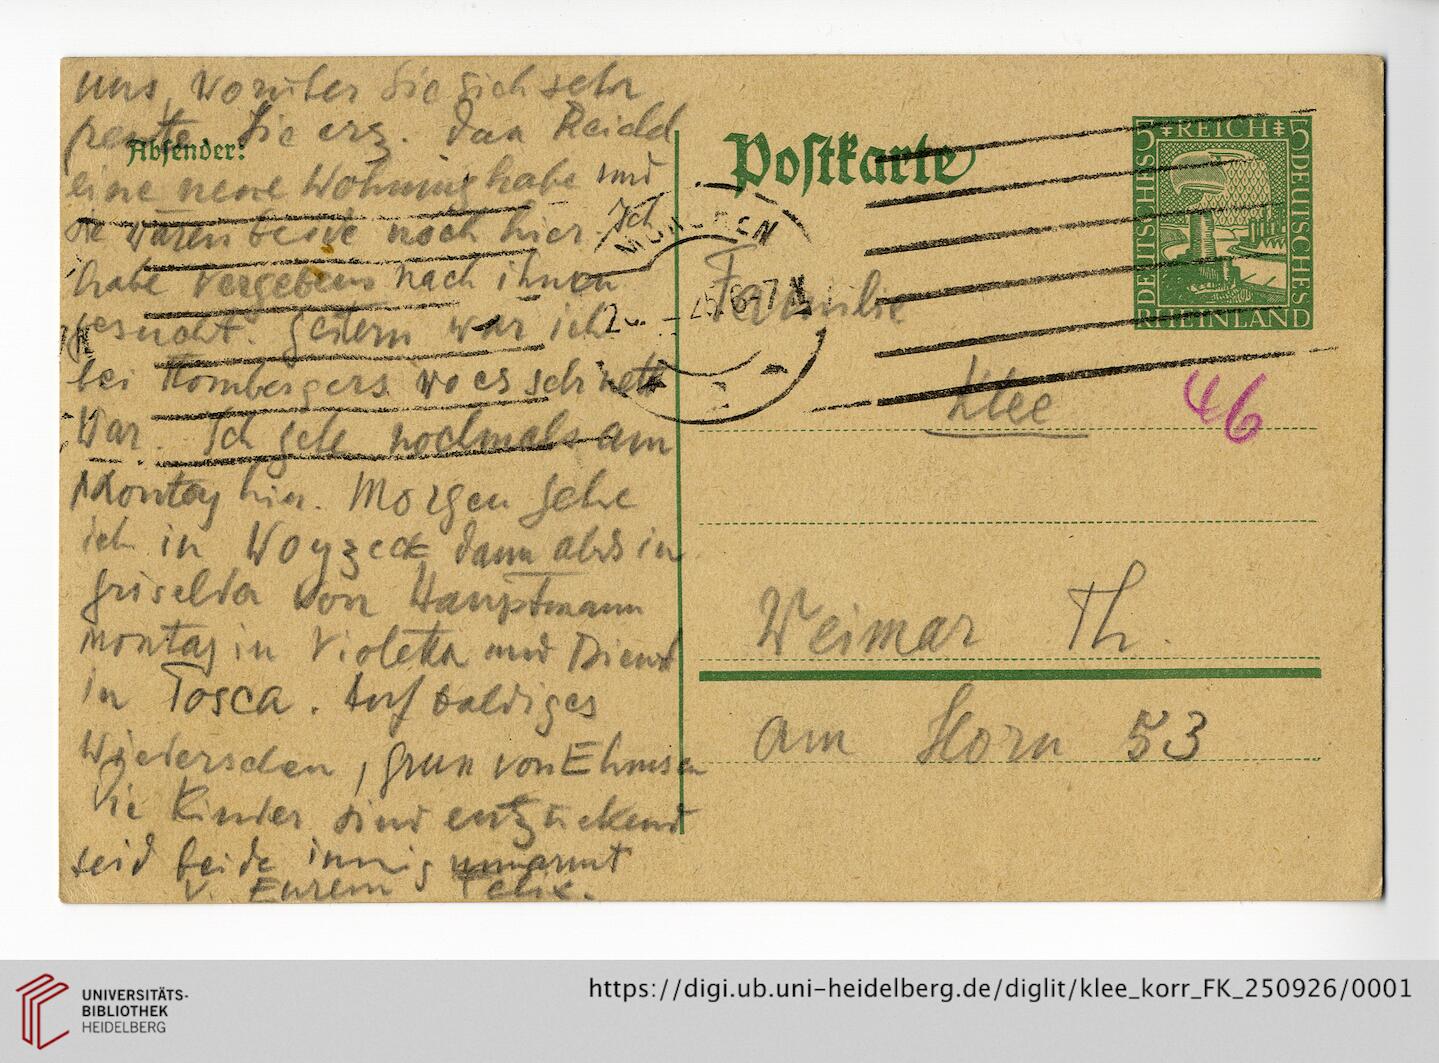 uns, worüber Sie sich sehr
freute. Sie erz. dan Reidd
Absender:
eine neue Wohnung habe und
sie wären beide noch hier. Ich
habe vergebens nach ihnen
gesucht. Gestern war ich
bei Hombergers wo es sehr nett
war. Ich gehe nochmals am
Montag hin. Morgen gehe
ich in Woyzeck dann abds in
Griselda von Hauptmann
Montag in Violetta und Dienst
in Tosca. Auf baldiges
Wiedersehen, Gruss von Ehmsen
Die Kinder sind entzückend
seid beide innig umarmt
v. Eurem Felix.
Postkarte
5 REICH 5
DEUTSCHES
DEUTSCHES
RHEINLAND
MÜNCHEN
25. 6-7 N
Familie
Klee
46
Weimar Th.
am Horn 53
UNIVERSITÄTS-
BIBLIOTHEK
HEIDELBERG
https://digi.ub.uni-heidelberg.de/diglit/klee_korr_FK_250926/0001